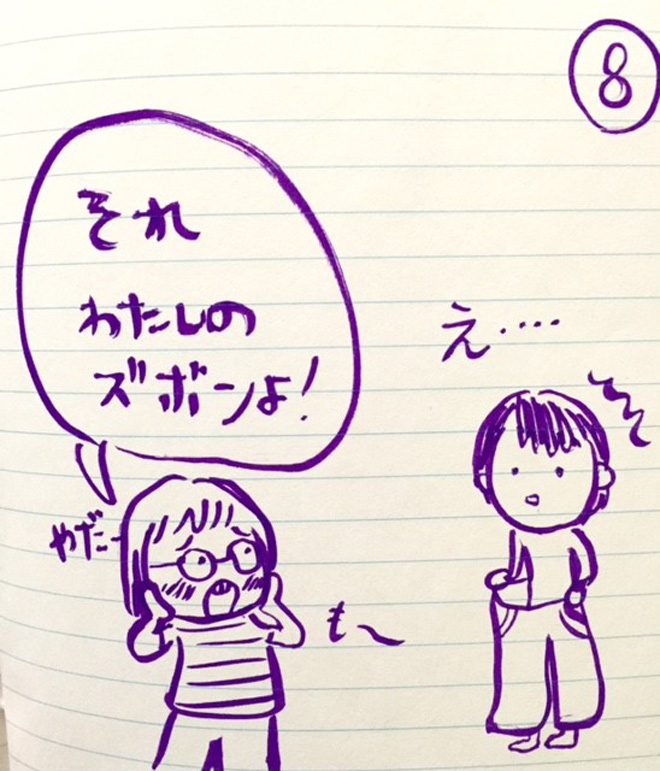 8
それ
わたしの
ズボンよ!
え‥‥
やだー
も〜